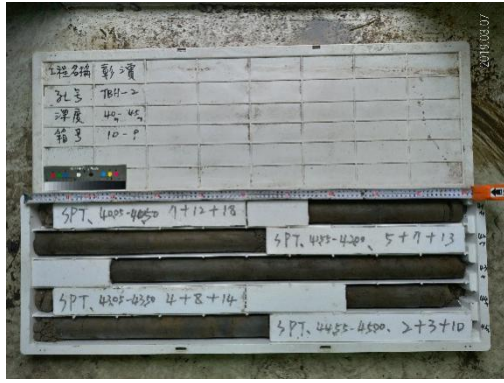 2019.03.07
工程名稱 彰濱
孔号 TBH-2
深度 40-45
箱号 10-9
SPT、4005-4050 7+12+18
SPT、4155-4200、5+7+13
SPT、4305-4350 4+8+14
SPT、4455-4500、2+3+10